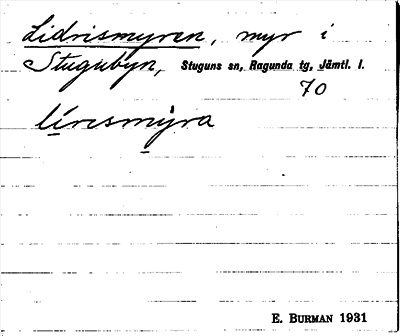 Lidrismyren, myr i
Stugubyn, Stuguns sn, Ragunda tg, Jämtl. l.
70
líresmỳra
E. BURMAN 1931